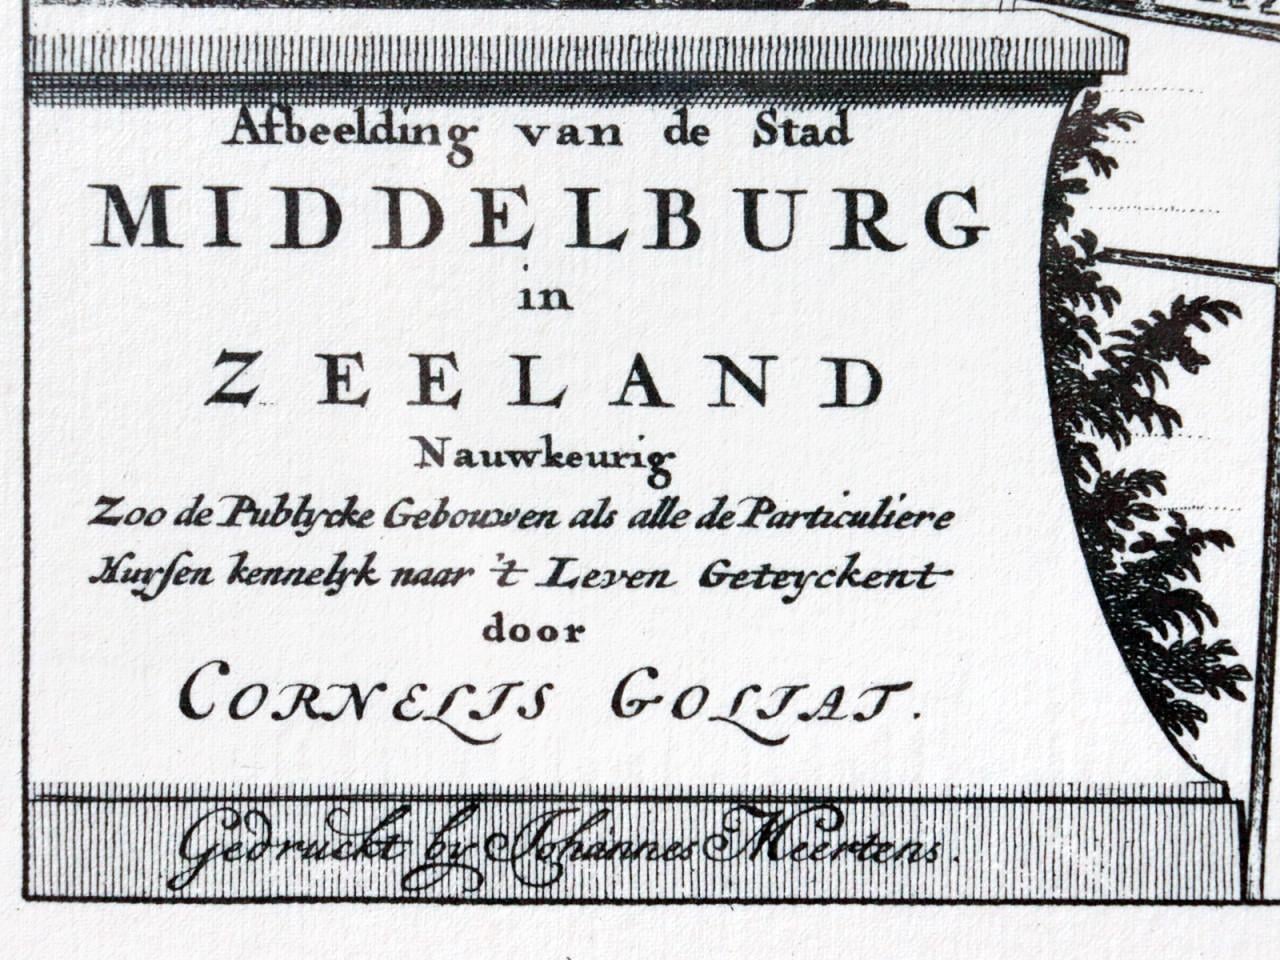 Afbeelding van de Stad
MIDDELBURG
in
ZEELAND
Nauwkeurig
Zoo de Publycke Gebouwen als alle de Particuliere
Huysen kennelyk naar 't Leven Geteyckent
door
CORNELIS GOLIAT.
Gedruckt by Johannes Meertens.